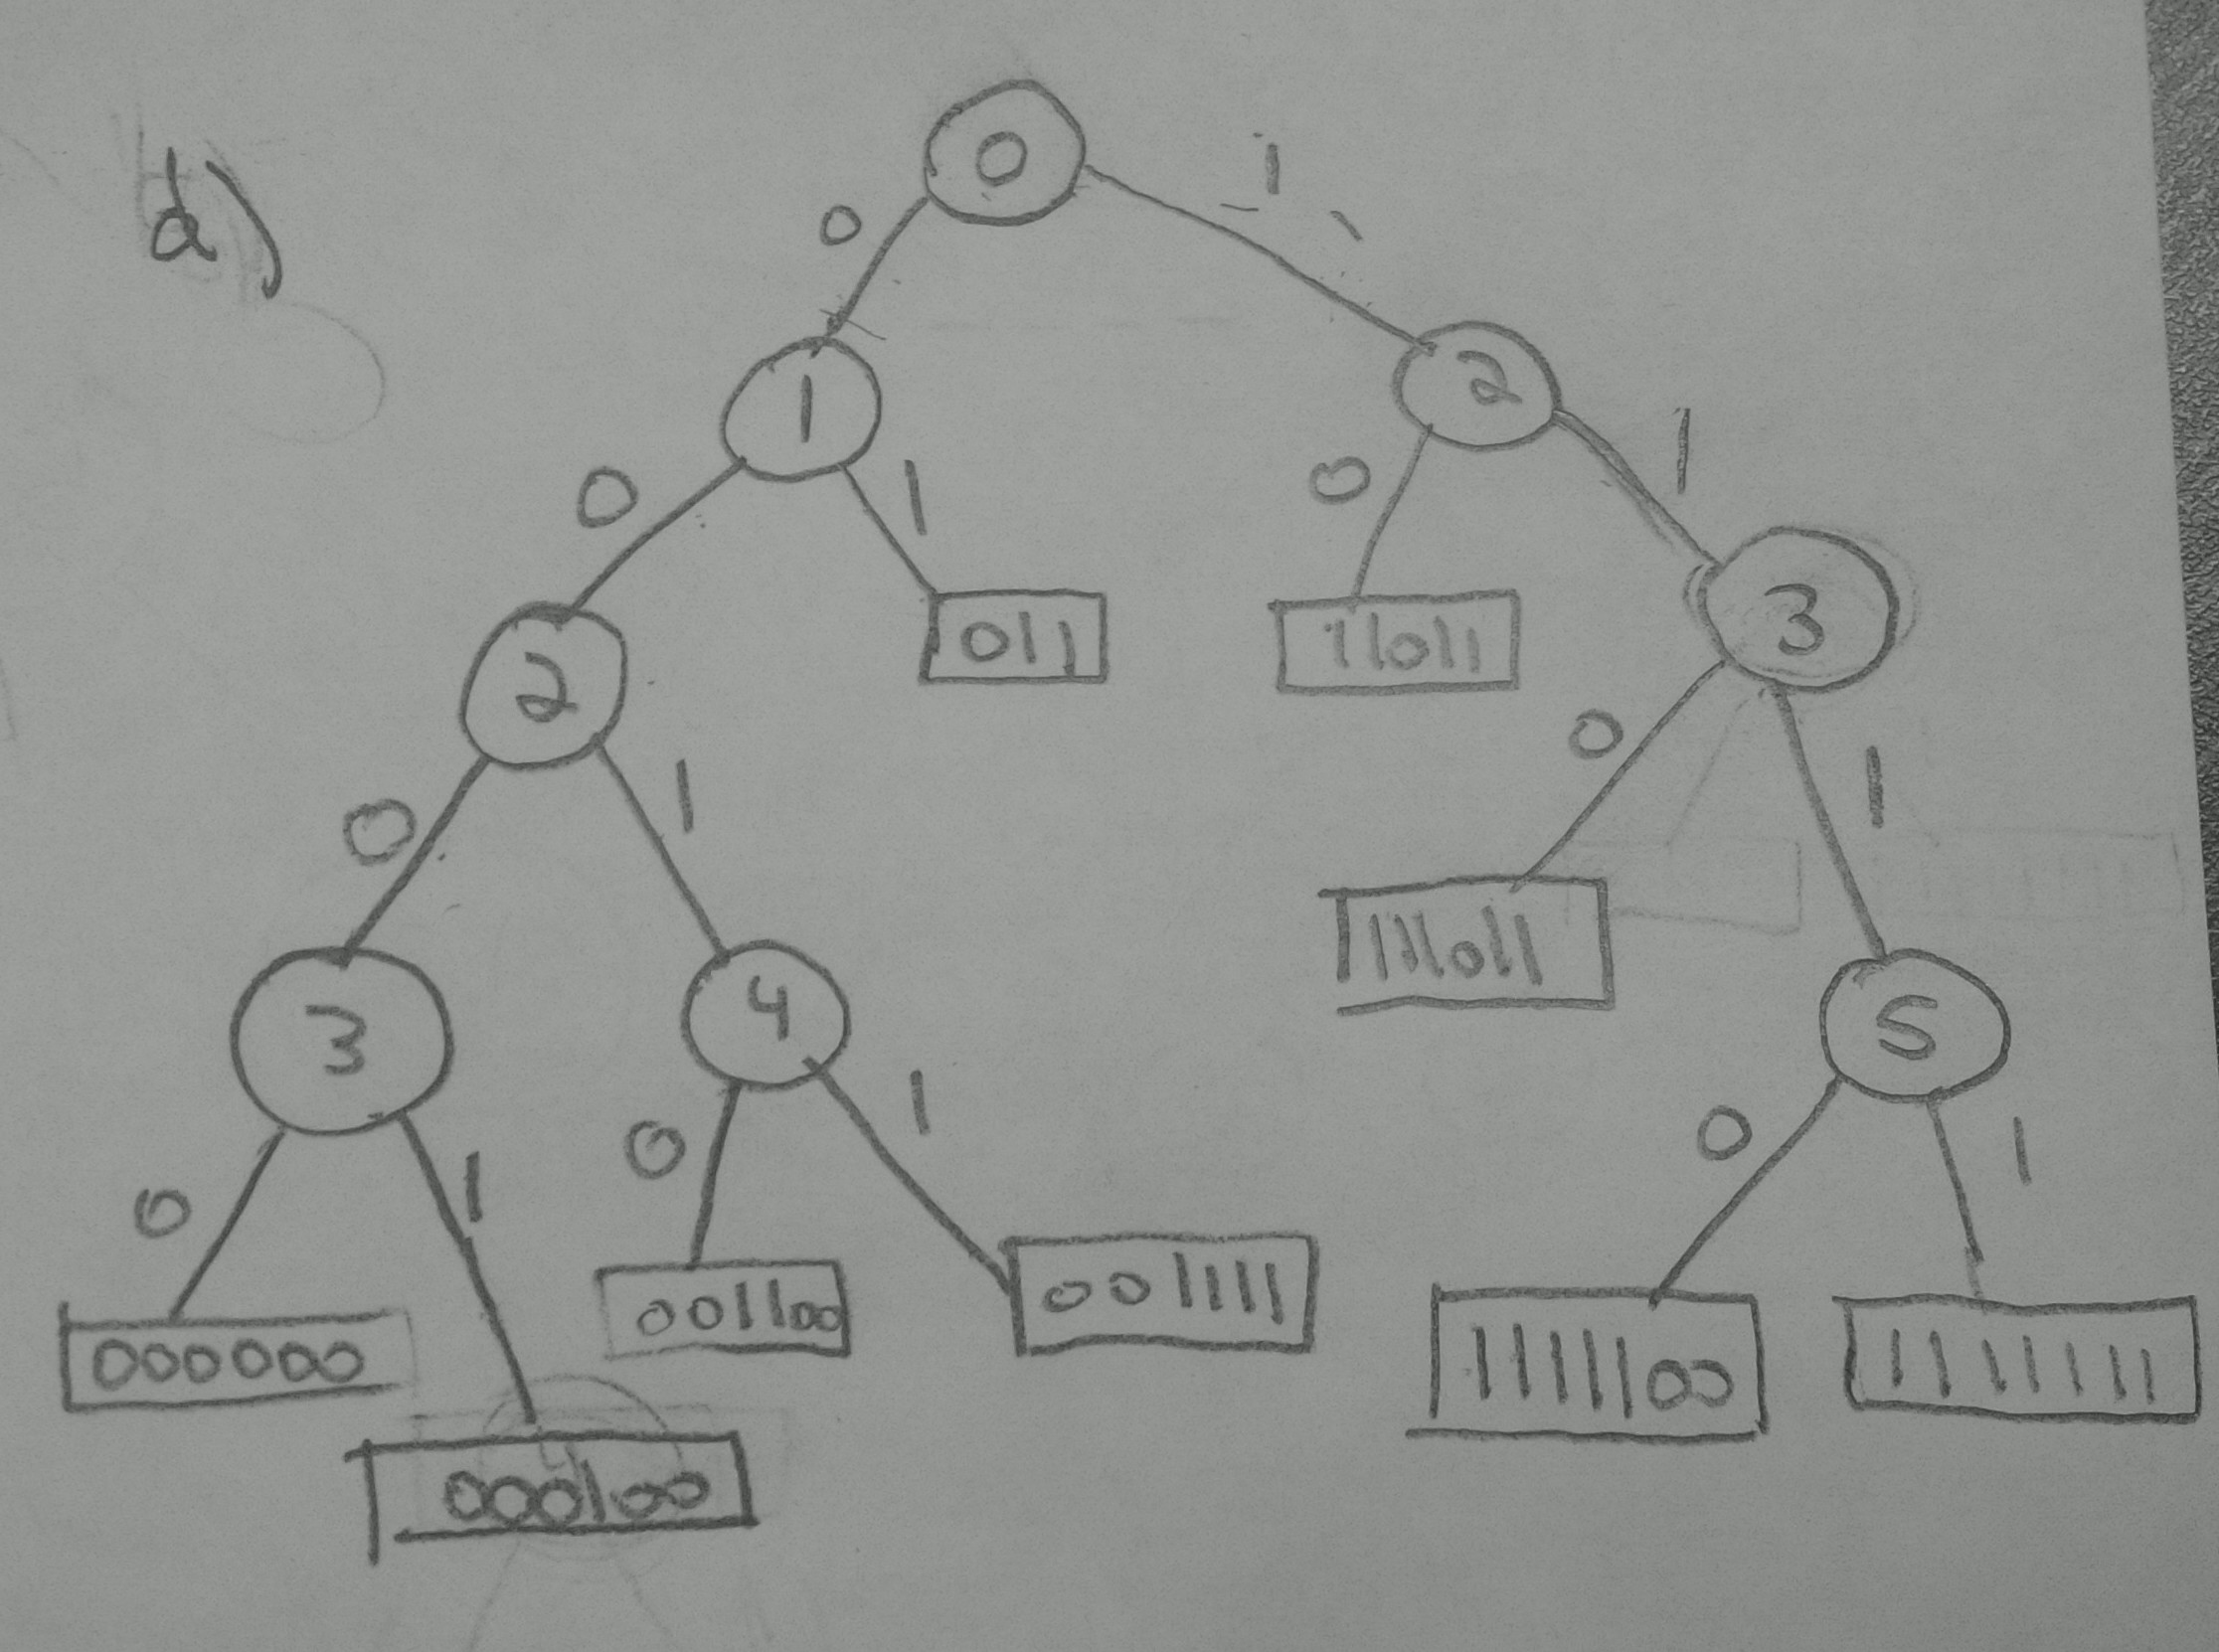 d)
0
0 1
1 2
0 1 0 1
2 011 11011 3
0 1 0 1
3 4 111011 5
0 1 0 1 0 1
000000 001100 001111 1111100 1111111
000100